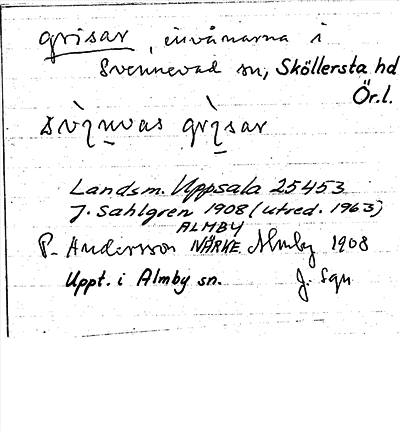 grisar, invånarna i
Svennevad sn, Sköllersta hd
Ör.l.
grìsar
Landsm. Uppsala 25453
J. Sahlgren 1908 (utred. 1963)
ALMBY
P. Andersson NÄRKE Almby 1908
Uppt. i Almby sn. J. Sgn